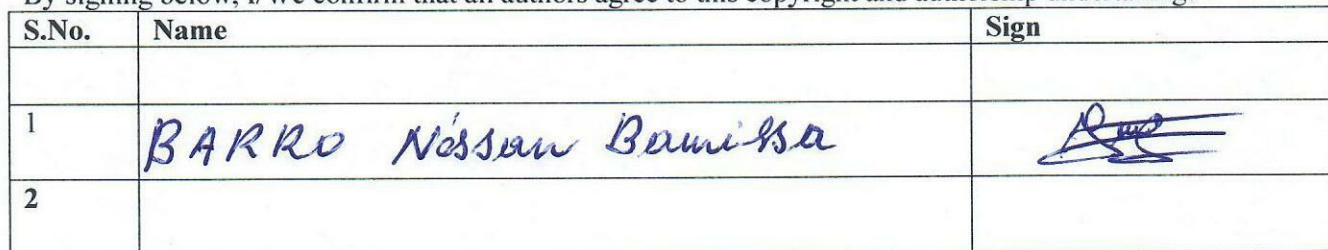 By signing below, I/We confirm that all authors agree to this copyright and authorship undertaking.
S.No. Name Sign
1 BARRO Néssan Bamissa
2